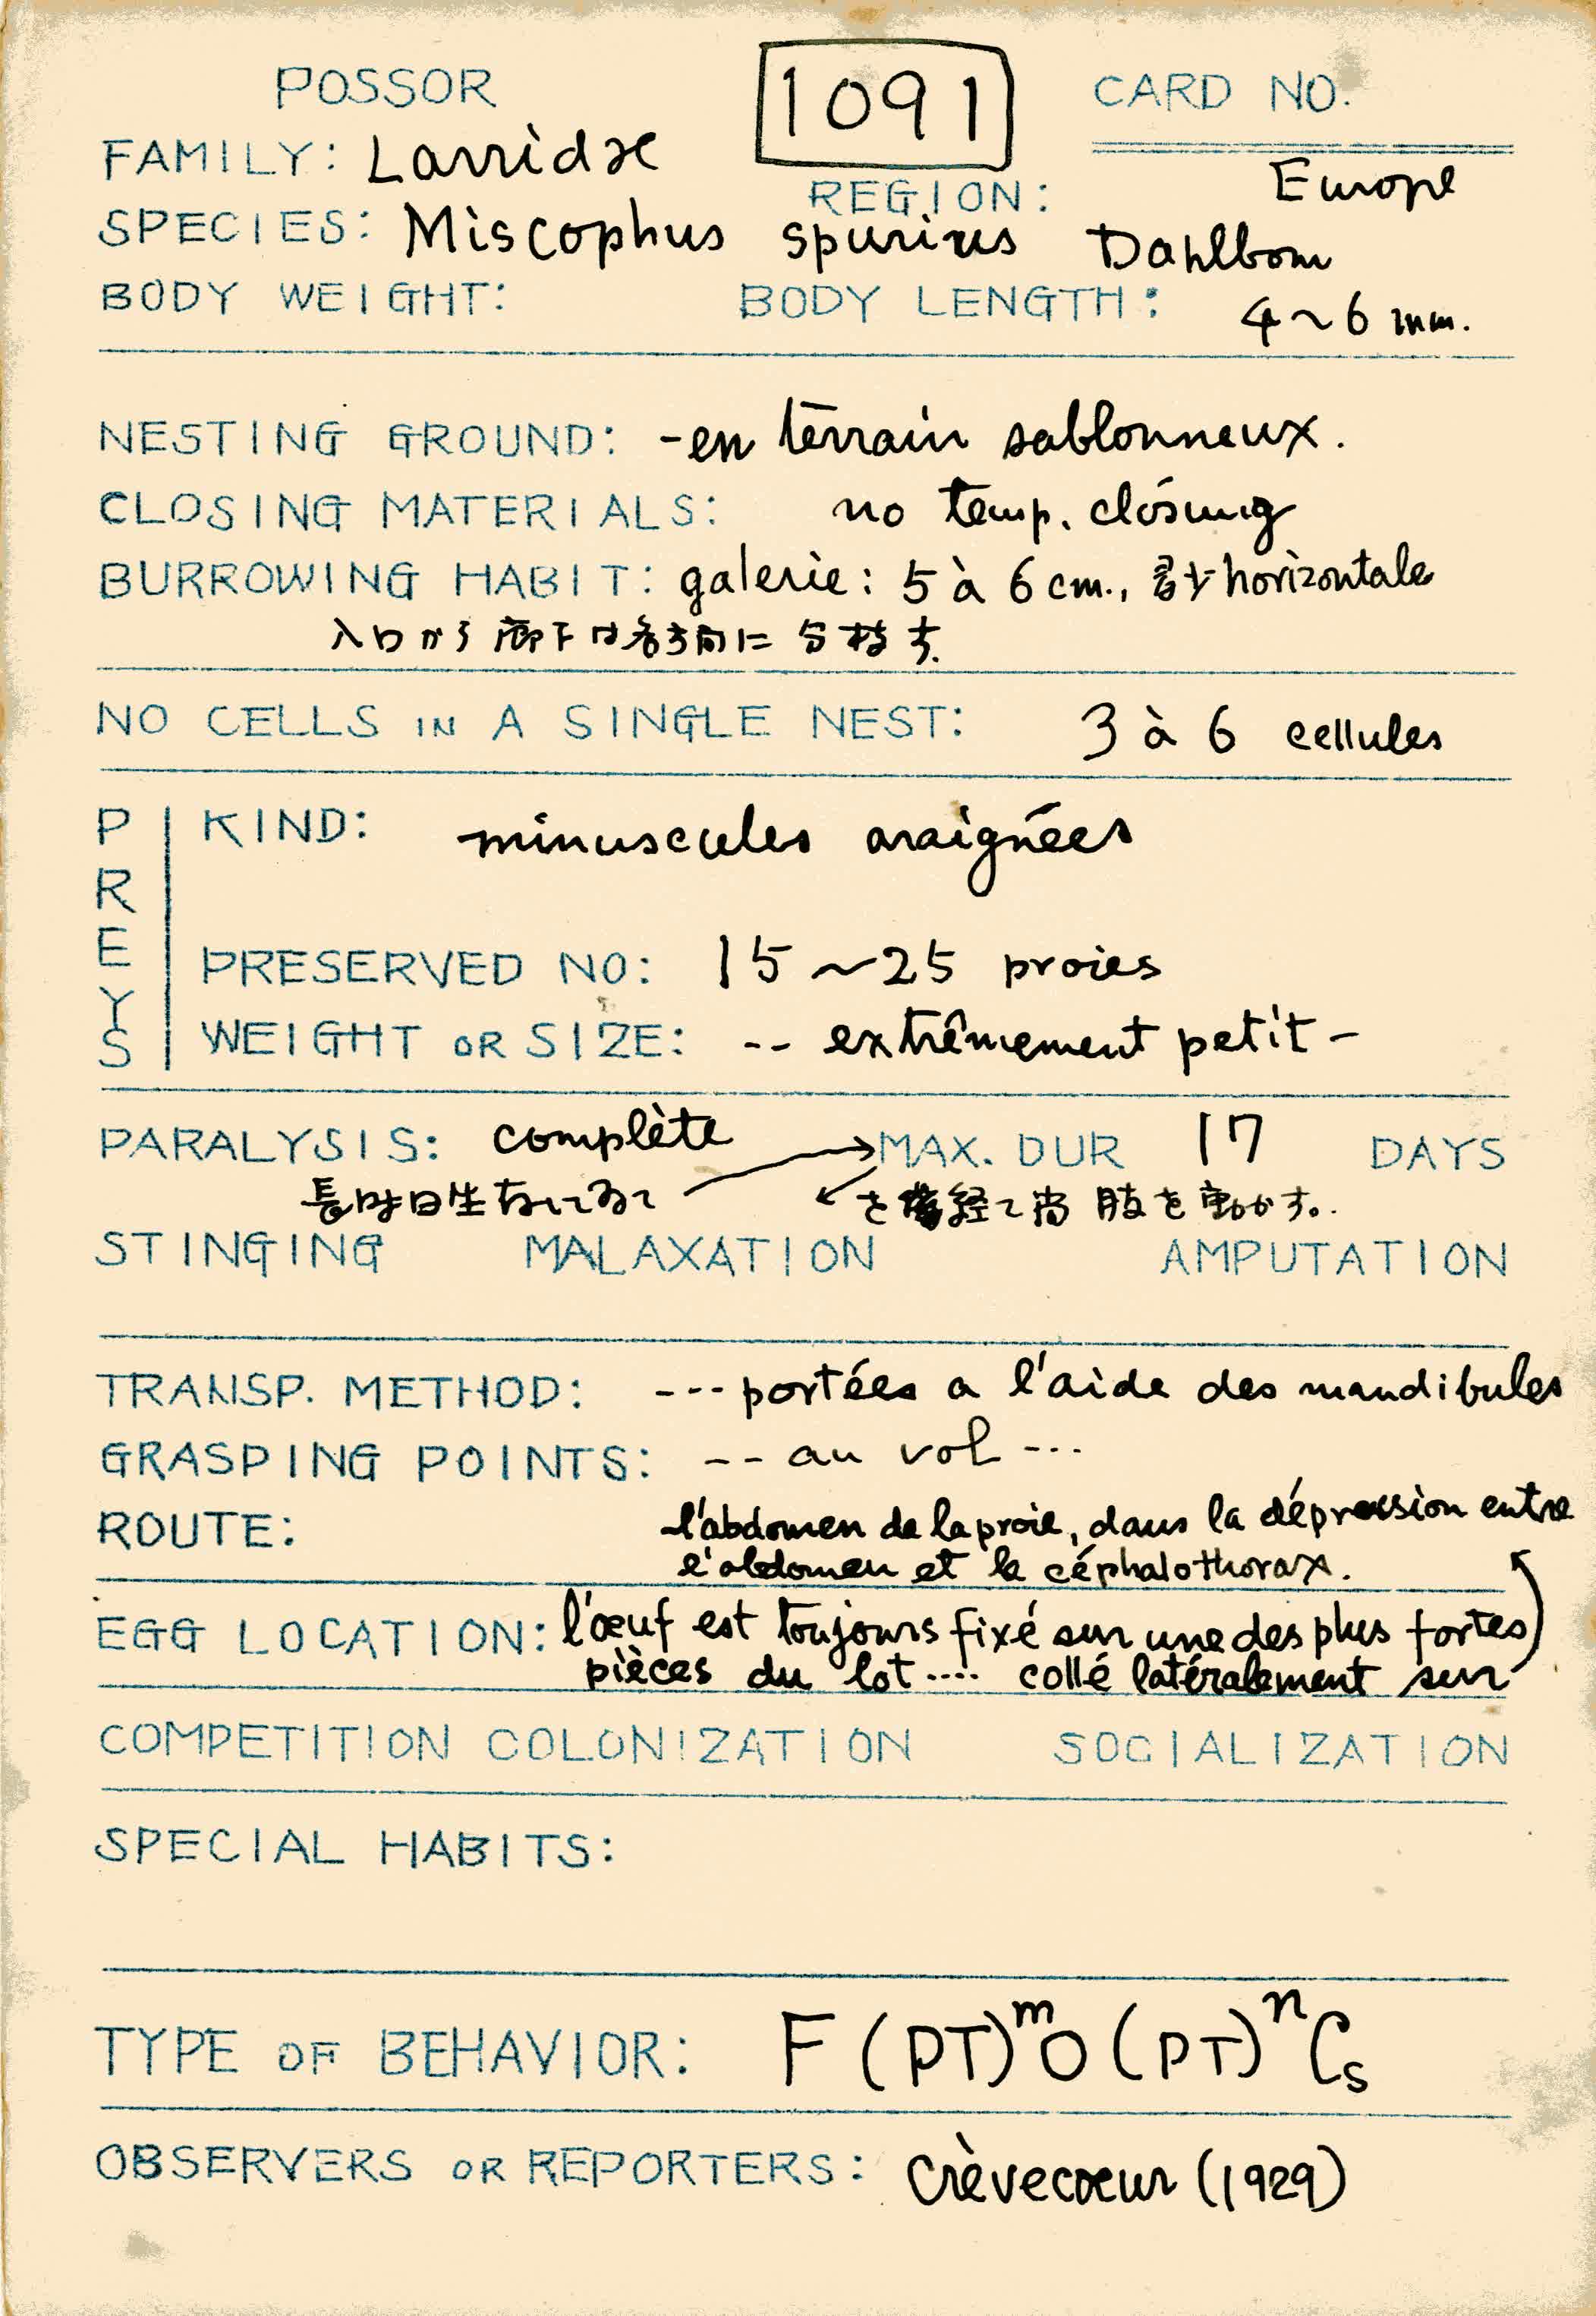 POSSOR
1091
CARD NO.
FAMILY: Larridæ
REGION: Europe
SPECIES: Miscophus spurius Dahlbom
BODY WEIGHT: BODY LENGTH: 4~6 mm.
NESTING GROUND: -en terrain sablonneux.
CLOSING MATERIALS: no temp. closing
BURROWING HABIT: galerie: 5 à 6 cm., horizontale
入口から廊下は各方向に分枝す.
NO CELLS IN A SINGLE NEST: 3 à 6 cellules
PREYS
KIND: minuscules araignées
PRESERVED NO: 15~25 proies
WEIGHT OR SIZE: -- extrêmement petit -
PARALYSIS: complète → MAX. DUR 17 DAYS
長時日生きてゐて を経て尚肢を動かす。
STINGING MALAXATION AMPUTATION
TRANSP. METHOD: --- portées a l'aide des mandibules
GRASPING POINTS: -- au vol ---
ROUTE:
l'abdomen de la proie, dans la dépression entre
l'abdomen et le céphalothorax.
EGG LOCATION: l'œuf est toujours fixé sur une des plus fortes
pièces du lot .... collé latéralement sur
COMPETITION COLONIZATION SOCIALIZATION
SPECIAL HABITS:
TYPE OF BEHAVIOR: F(PT)ᵐO(PT)ⁿCs
OBSERVERS OR REPORTERS: Crèvecoeur (1929)